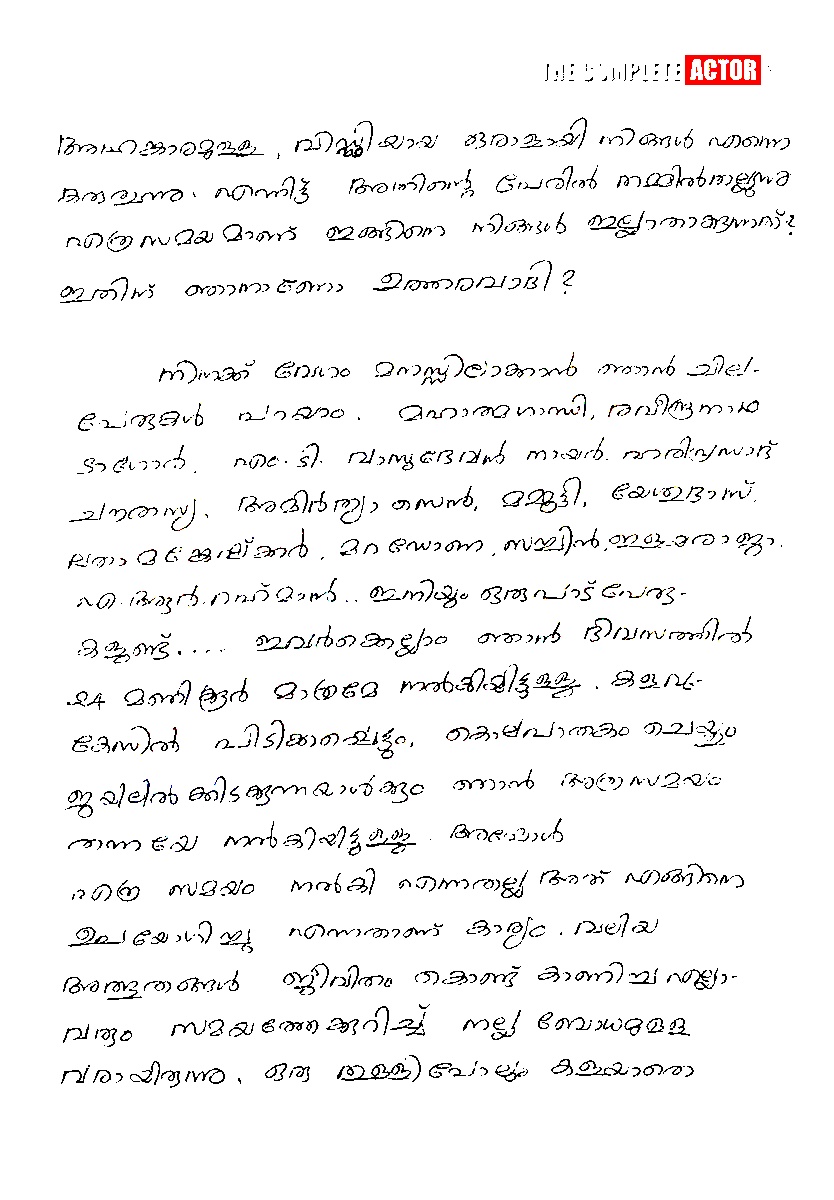 THE COMPLETE ACTOR
അഹങ്കാരമുള്ള, വിഡ്ഢിയായ ഒരാളായി നിങ്ങൾ എന്നെ
കരുതുന്നു. എന്നിട്ട് അതിന്റെ പേരിൽ തമ്മിൽതല്ലുന്നു
എത്രസമയമാണ് ഇങ്ങിനെ നിങ്ങൾ ഇല്ലാതാക്കുന്നത്?
ഇതിന് ഞാനാണോ ഉത്തരവാദി?
നിനക്ക് വേഗം മനസ്സിലാക്കാൻ ഞാൻ ചില-
പേരുകൾ പറയാം. മഹാത്മഗാന്ധി, രവീന്ദ്രനാഥ
ടാഗോർ, എം.ടി. വാസുദേവൻ നായർ, ഹരിപ്രസാദ്
ചൗരസ്യ, അമർത്യാ സെൻ, മമ്മൂട്ടി, യേശുദാസ്,
ലതാ മങ്കേഷ്ക്കർ, മറഡോണ, സച്ചിൻ, ഇളയരാജാ,
എ.ആർ.റഹ്മാൻ.. ഇനിയും ഒരുപാട് പേരു-
കളുണ്ട്.... ഇവർക്കെല്ലാം ഞാൻ ദിവസത്തിൽ
24 മണിക്കൂർ മാത്രമേ നൽകിയിട്ടുള്ളൂ. കളവു-
കേസിൽ പിടിക്കപ്പെട്ടും, കൊലപാതകം ചെയ്തും
ജയിലിൽ കിടക്കുന്നയാൾക്കും ഞാൻ അത്രസമയം
തന്നെയേ നൽകിയിട്ടുള്ളൂ. അപ്പോൾ
എത്ര സമയം നൽകി എന്നതല്ല അത് എങ്ങിനെ
ഉപയോഗിച്ചു എന്നതാണ് കാര്യം. വലിയ
അത്ഭുതങ്ങൾ ജീവിതം കൊണ്ട് കാണിച്ച എല്ലാ-
വരും സമയത്തേക്കുറിച്ച് നല്ല ബോധമുള്ള
വരായിരുന്നു, ഒരു തുള്ളിപോലും കളയാതെ